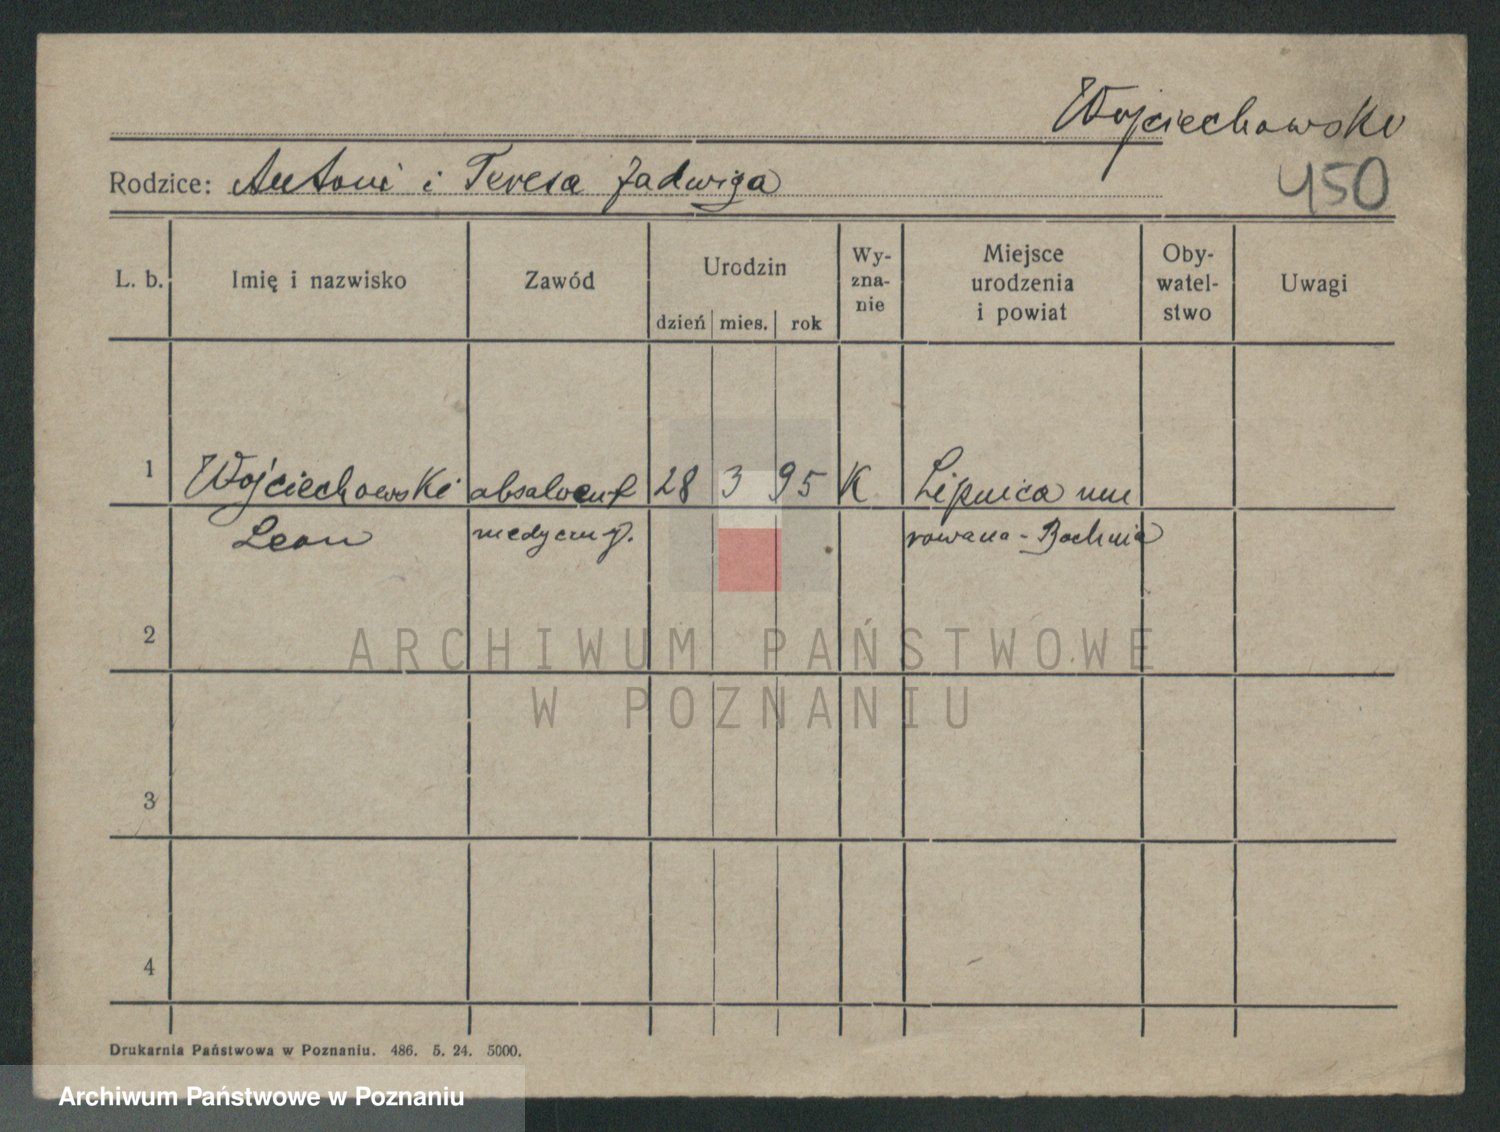 Wojciechowski
Rodzice: Antoni i Teresa Jadwiga
450
L. b. Imię i nazwisko Zawód Urodzin Wy- Miejsce Oby- Uwagi
zna- urodzenia watel-
nie i powiat stwo
dzień mies. rok
1 Wojciechowski absolwent 28 3 95 K Lipnica mu
Leon medycyny. rowana - Bochnia
2
3
4
ARCHIWUM PAŃSTWOWE
W POZNANIU
Drukarnia Państwowa w Poznaniu. 486. 5. 24. 5000.
Archiwum Państwowe w Poznaniu